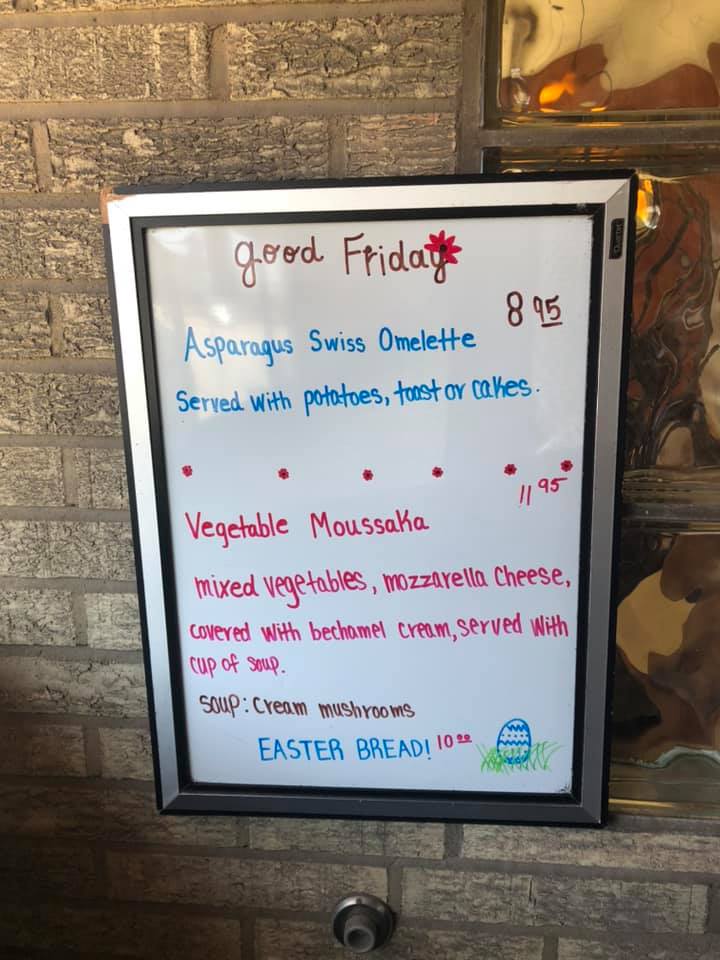 good Friday
8 95
Asparagus Swiss Omelette
Served with potatoes, toast or cakes.
11 95
Vegetable Moussaka
mixed vegetables, mozzarella Cheese,
covered with bechamel cream, served with
cup of soup.
soup: Cream mushrooms
EASTER BREAD! 10 00